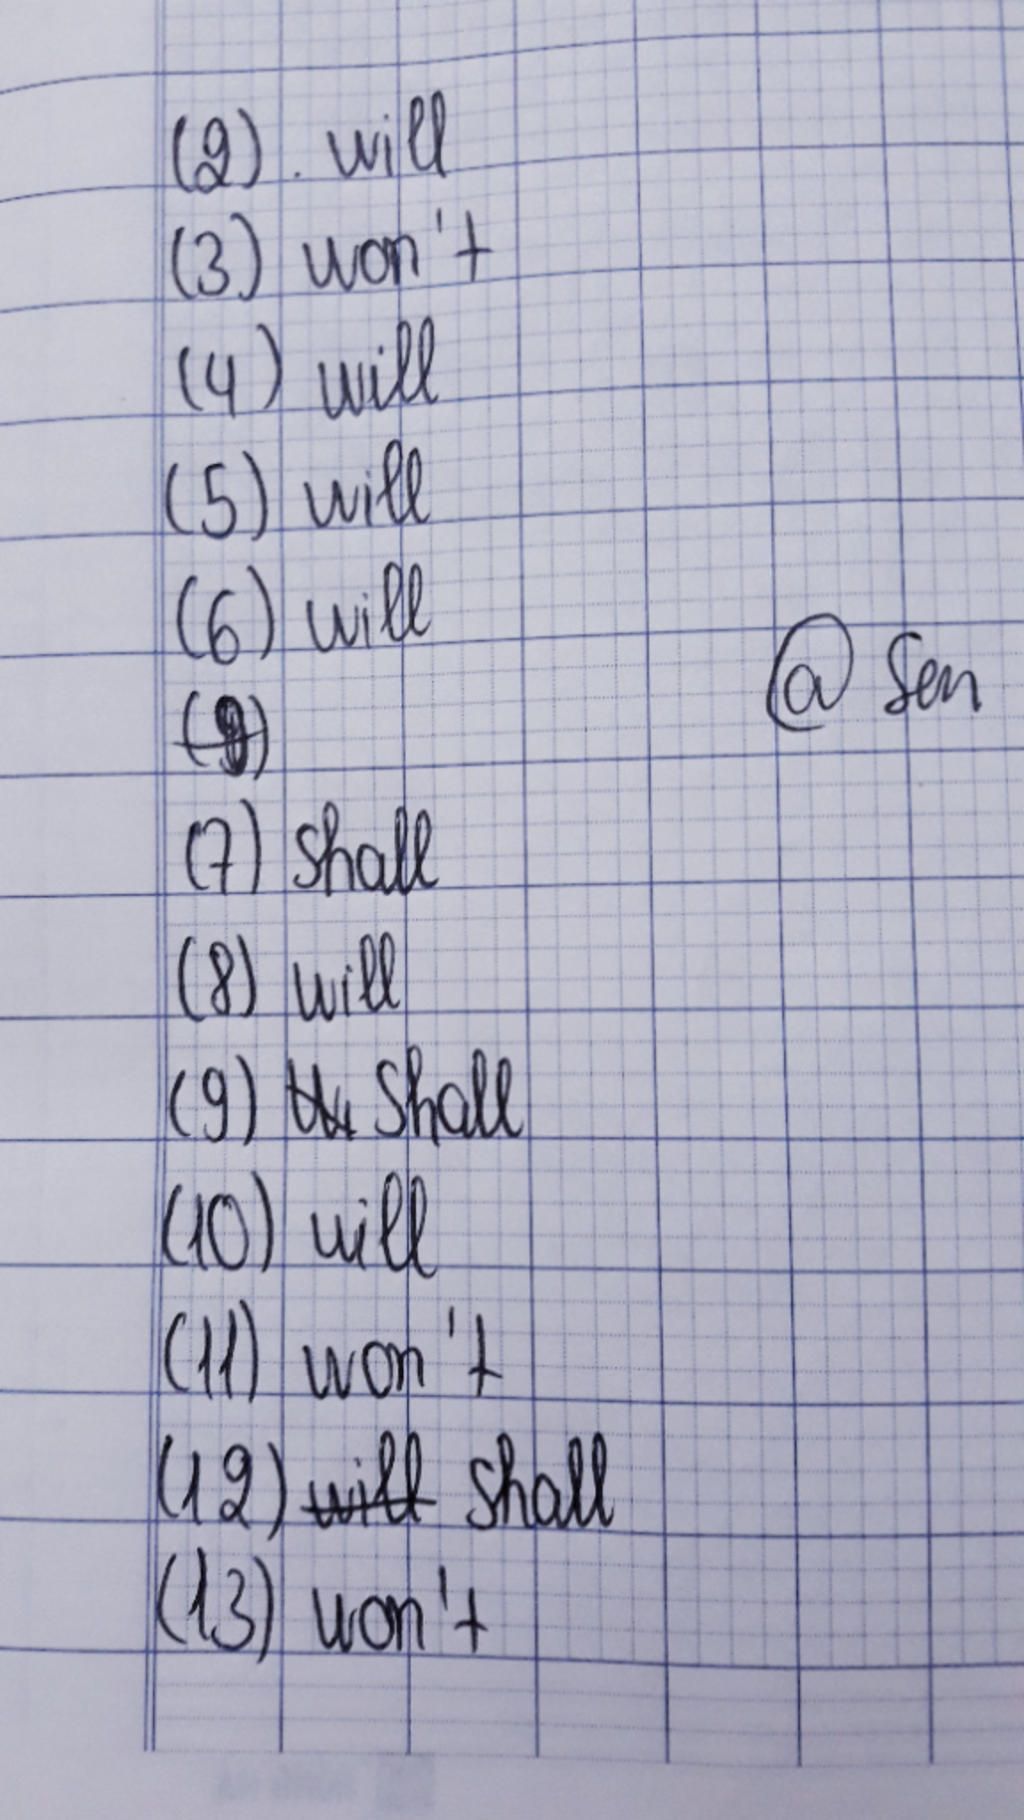 (2). will
(3) won't
(4) will
(5) will
(6) will
@ Sen
(7) shall
(8) will
(9) shall
(10) will
(11) won't
(12) will shall
(13) won't